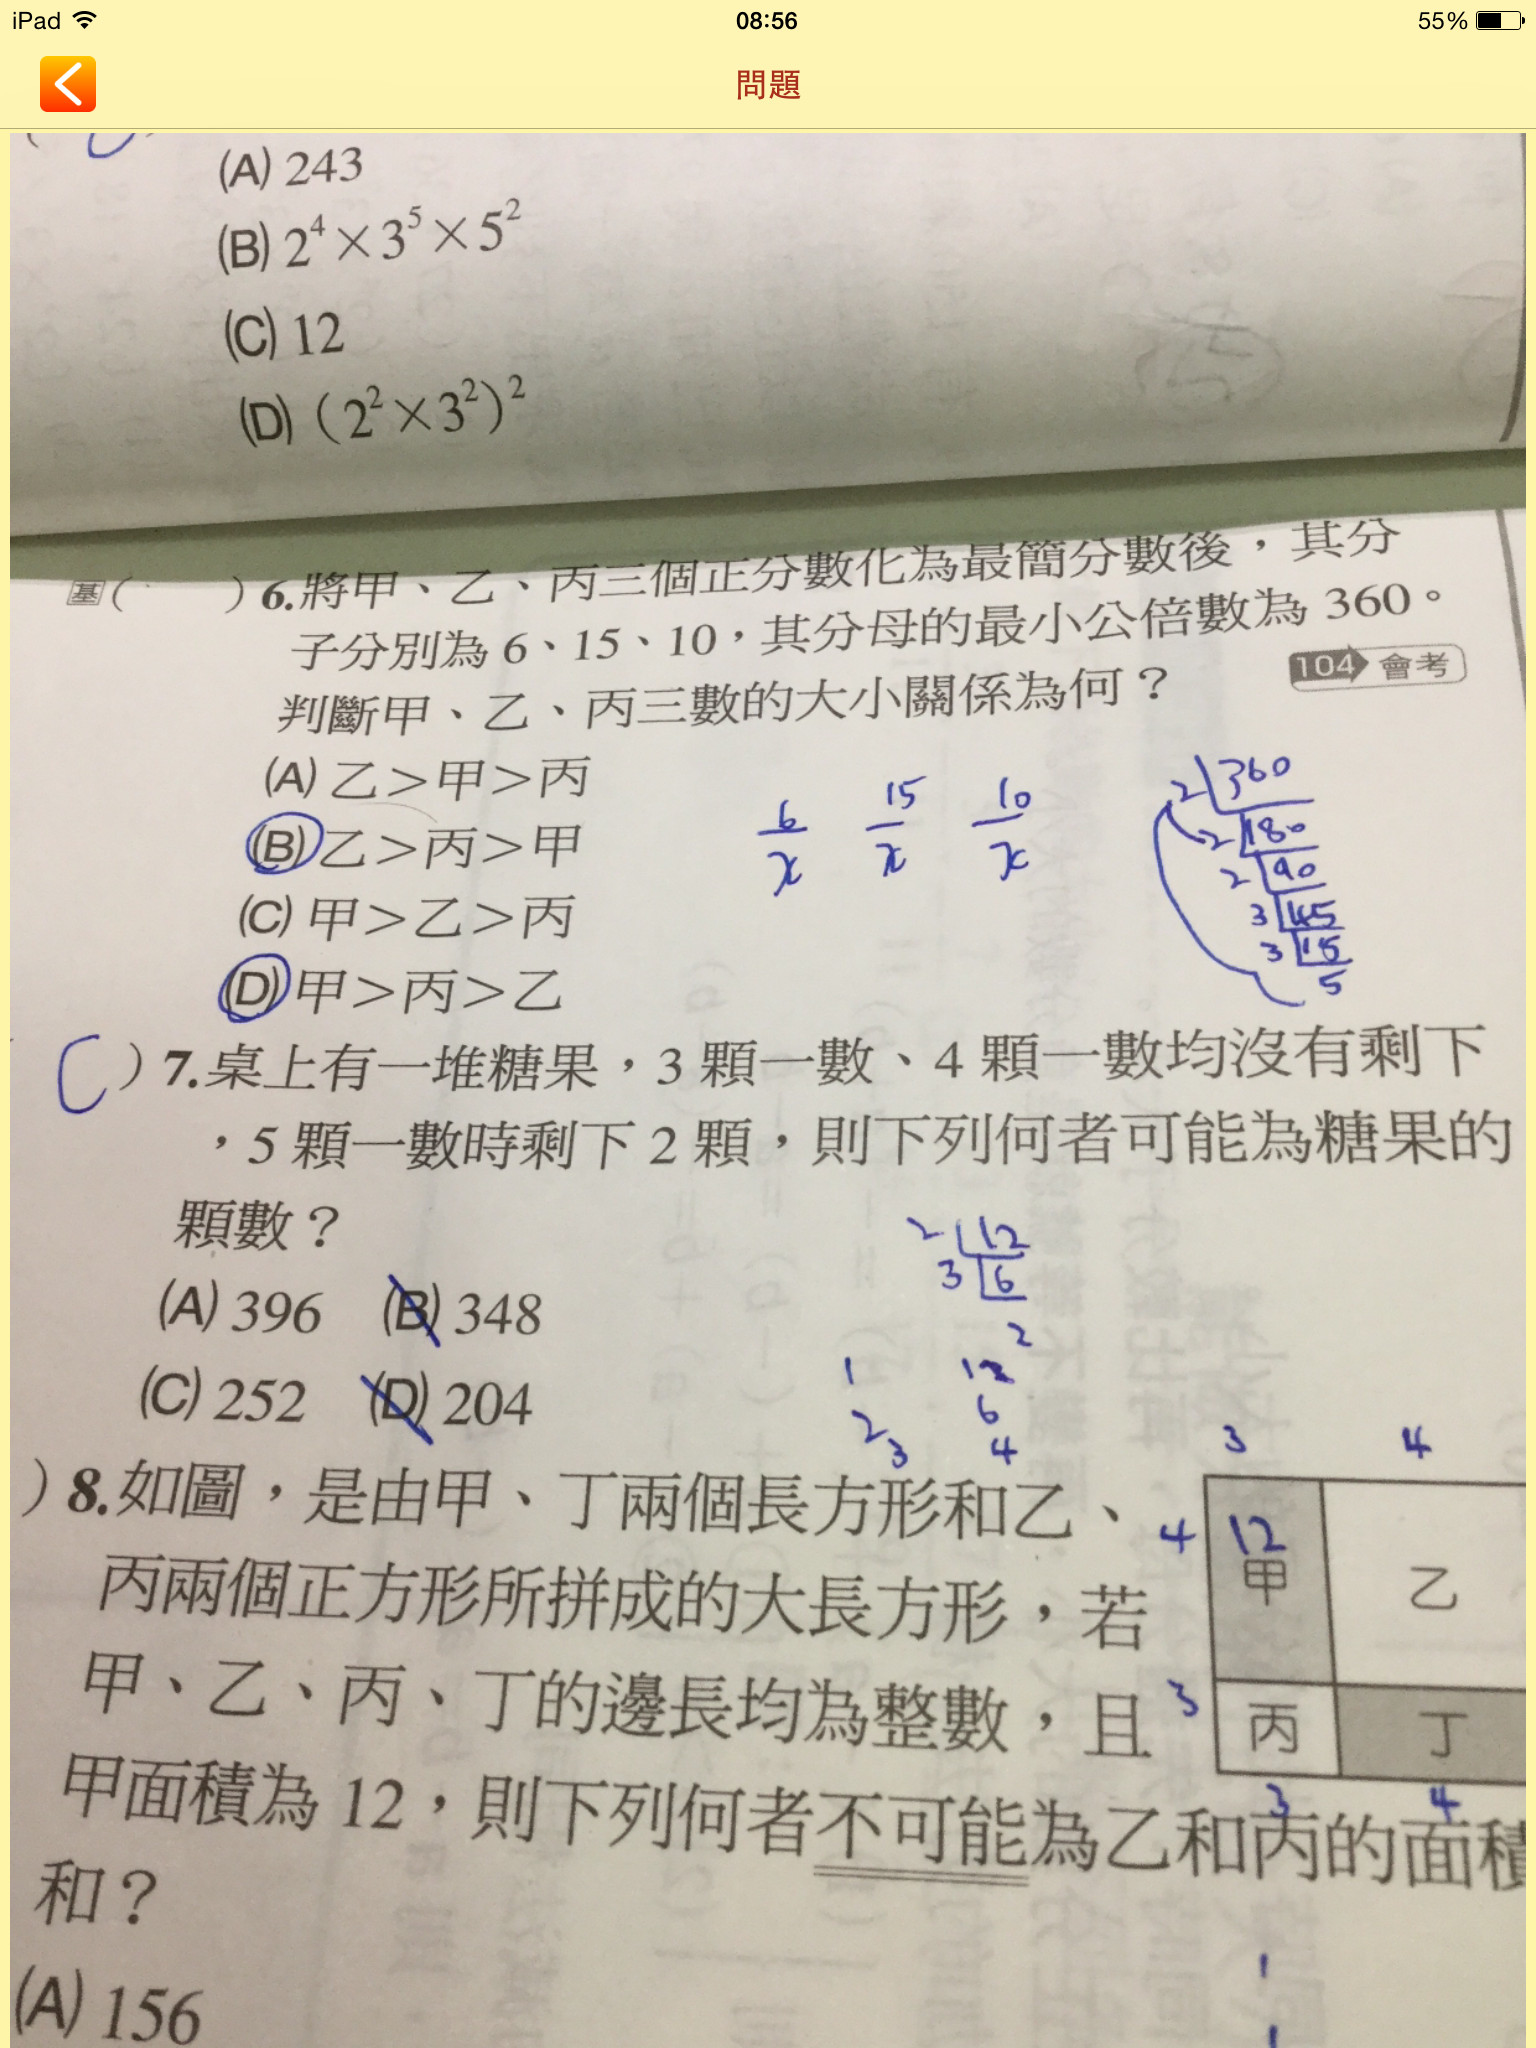 iPad
08:56
55%
問題
(A) 243
(B) 2⁴×3⁵×5²
(C) 12
(D) (2²×3²)²
基( )6.將甲、乙、丙三個正分數化為最簡分數後，其分
子分別為 6、15、10，其分母的最小公倍數為 360。
判斷甲、乙、丙三數的大小關係為何？ 104 會考
(A) 乙＞甲＞丙
(B) 乙＞丙＞甲
(C) 甲＞乙＞丙
(D) 甲＞丙＞乙
6/x 15/x 10/x
2 360
2 180
2 90
3 45
3 15
5
C )7.桌上有一堆糖果，3 顆一數、4 顆一數均沒有剩下
，5 顆一數時剩下 2 顆，則下列何者可能為糖果的
顆數？
(A) 396 (B) 348
(C) 252 (D) 204
2 12
3 6
2
1 12
2 6
3 4
)8.如圖，是由甲、丁兩個長方形和乙、
丙兩個正方形所拼成的大長方形，若
甲、乙、丙、丁的邊長均為整數，且
甲面積為 12，則下列何者不可能為乙和丙的面積
和？
(A) 156
3 4
4 12
甲 乙
3 丙 丁
3 4
1
1